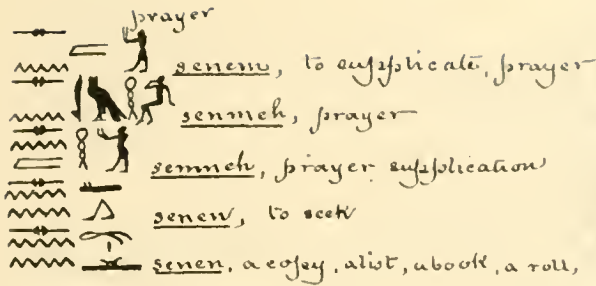 prayer
senem, to supplicate, prayer
senmeh, prayer
semneh, prayer supplication
senen, to seek
senen, a copy, a list, a book, a roll,